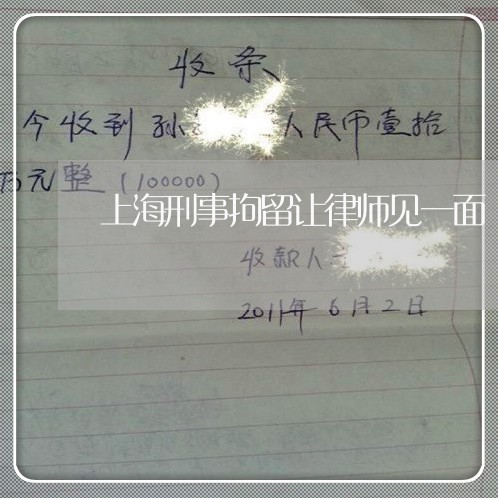 收条
今收到孙 人民币壹拾
万元整（100000）
上海刑事拘留让律师见一面
收款人
2011年6月2日